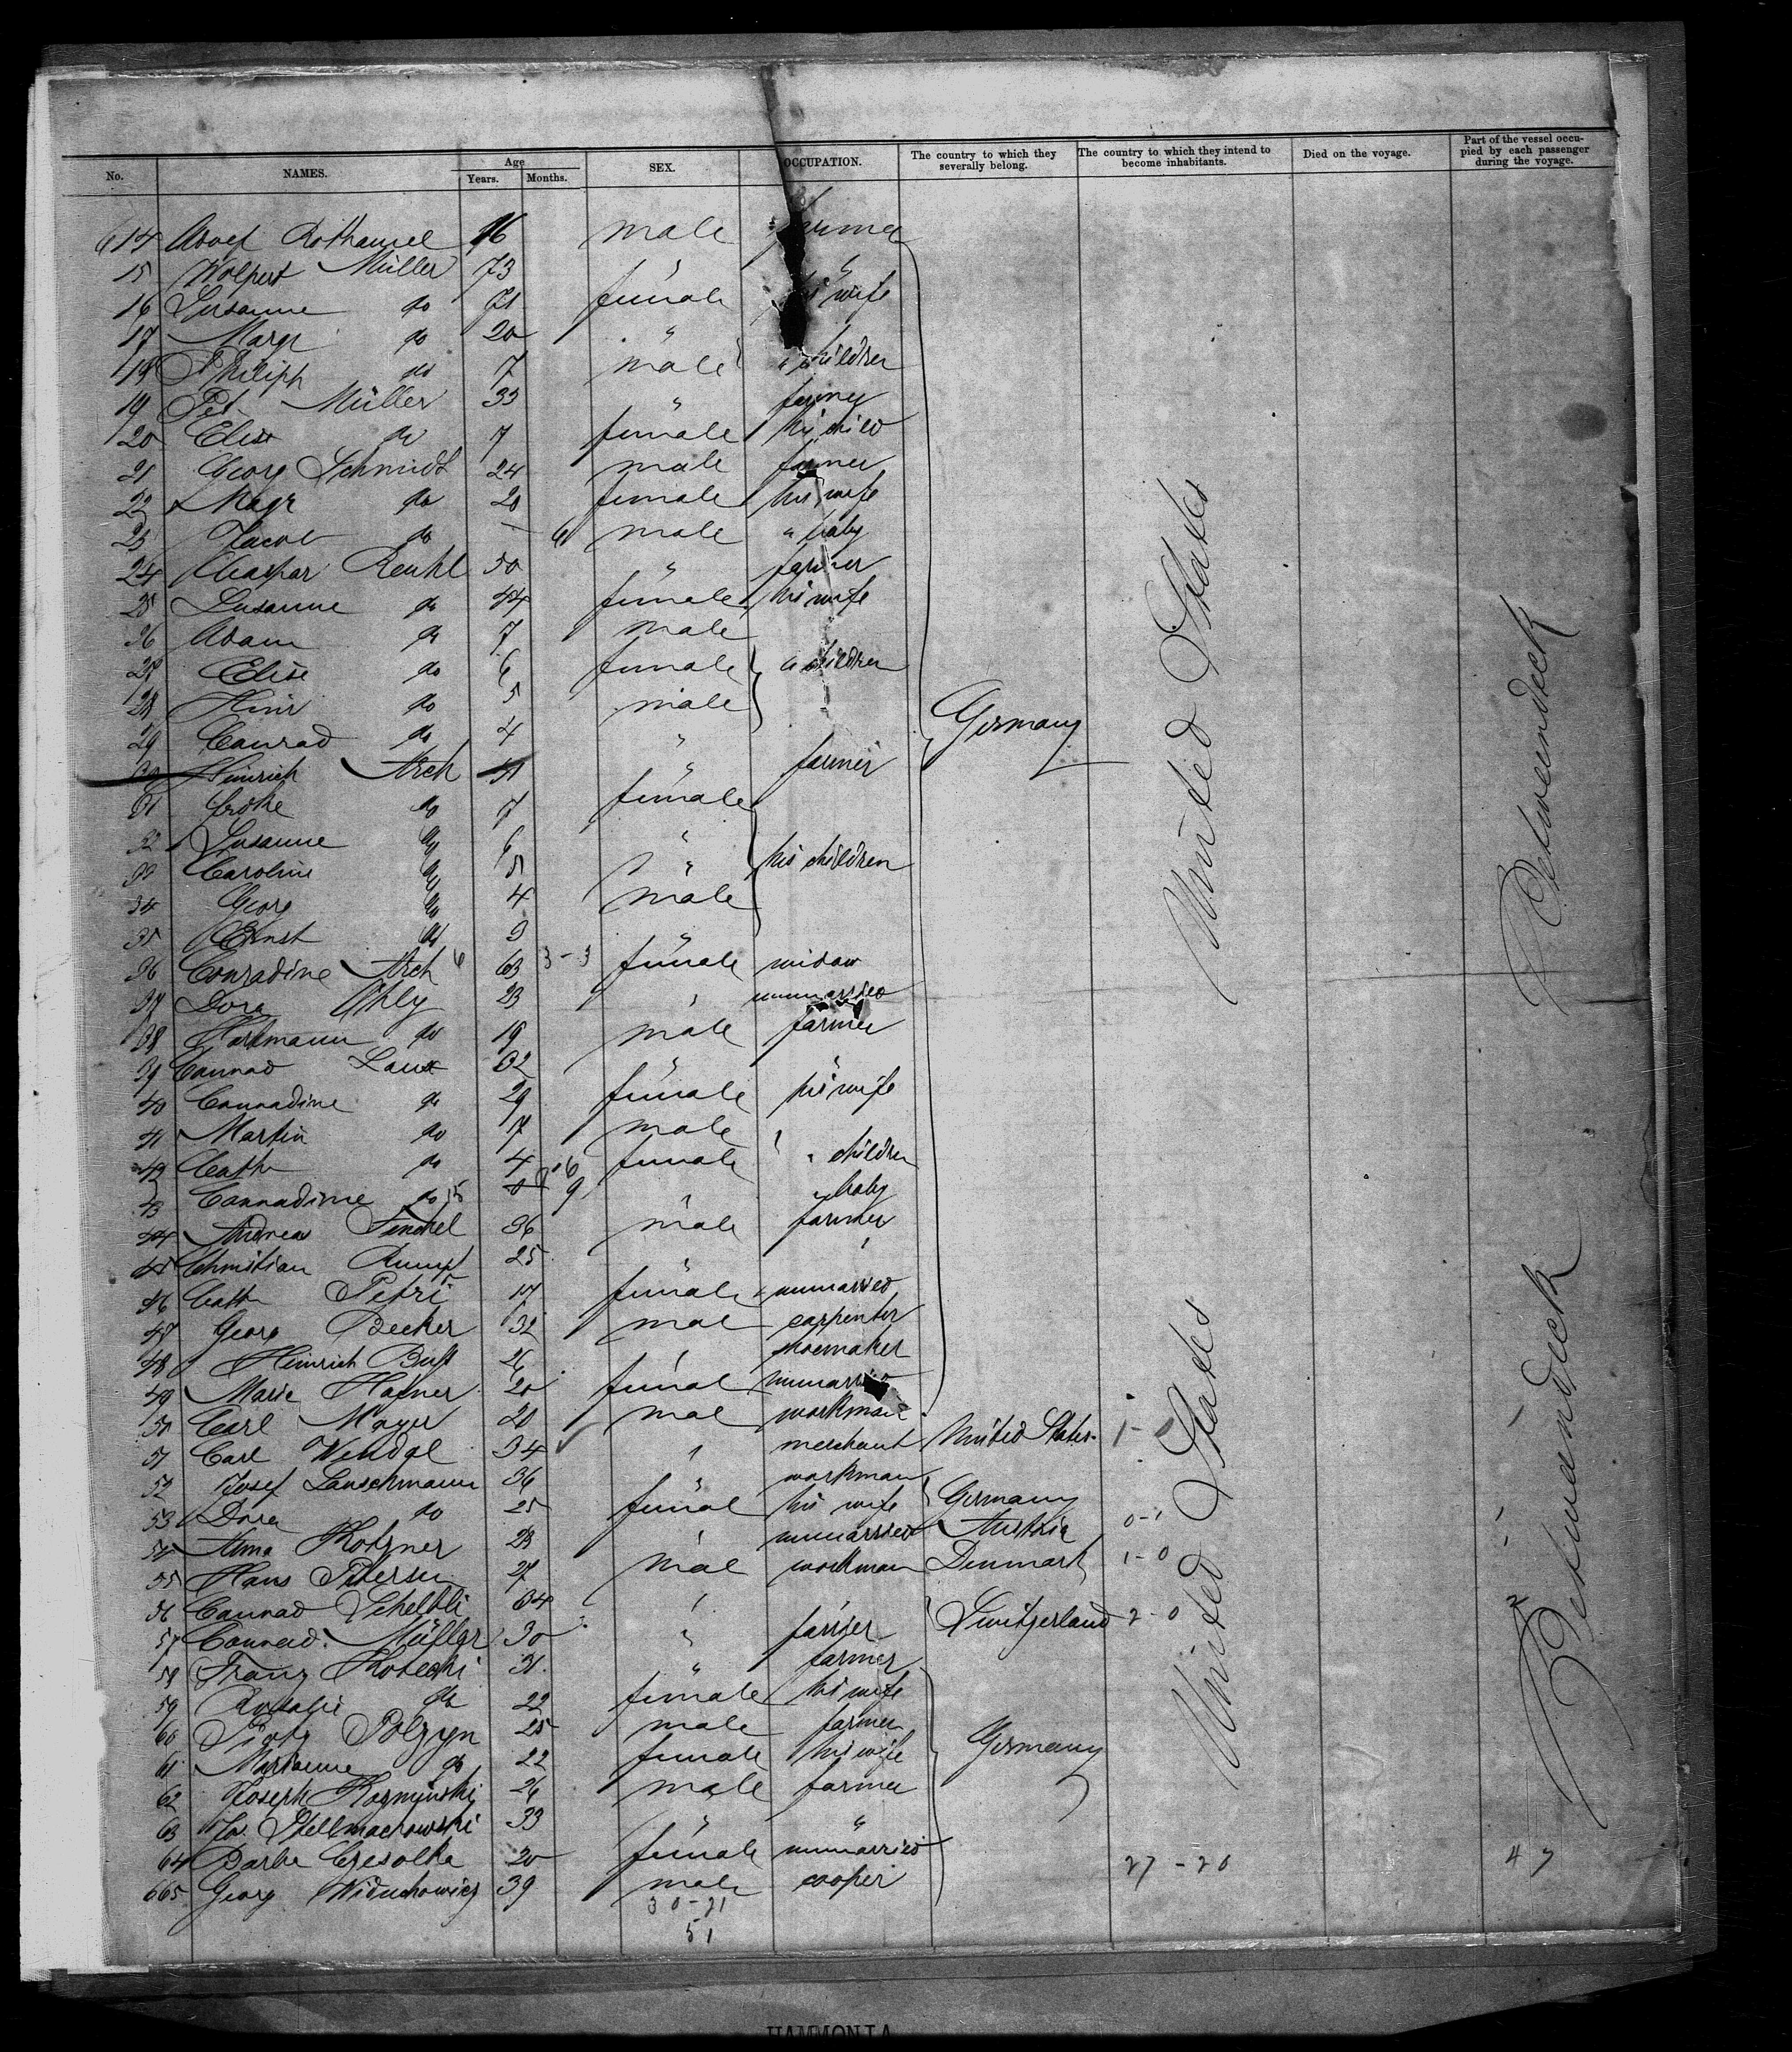 No. NAMES. Age Years. Months. SEX. OCCUPATION. The country to which they severally belong. The country to which they intend to become inhabitants. Died on the voyage. Part of the vessel occupied by each passenger during the voyage.
614 Adolf Rothamel 16 male farmer
15 Wolpert Müller 73 " "
16 Susanne do 71 female his wife
17 Margr do 20 "
18 Philipp do 7 male " children
19 Pet Müller 33 " farmer
20 Elise do 7 female his child
21 Georg Schmidt 24 male farmer
22 Magr do 20 female his wife
23 Jacob do - 6 male " baby
24 Caspar Reuhl 50 " farmer
25 Susanne do 44 female his wife
26 Adam do 7 male
27 Elise do 6 female " children
28 Heinr do 5 male
29 Conrad do 4 " Germany
30 Heinrich Arch 31 " farmer
31 do 7 female
32 Susanne do 6 "
33 Caroline do 5 " his children
34 Georg do 4 male
35 Ernst do 3 "
36 Conradine Arch 63 3-3 female widow
37 Dora Uhly 23 " unmarried
38 Hartmann do 19 male farmer
39 Conrad Laux 32 " "
40 Conradine do 29 female his wife
41 Martin do 7 male
42 Cath do 4 female " children
43 Conradine do 9 " " baby
44 Andreas Finckel 36 male farmer
45 Christian Rumpf 25 " "
46 Cath Petri 17 female unmarried
47 Georg Becker 32 mal carpenter
48 Heinrich 26 " shoemaker
49 Marie Hafner 20 femal unmarried
50 Carl Mayer 20 mal workman
51 Carl Wendal 34 " merchant United States 1-0
52 Josef Lauschmann 36 " workman
53 Dora do 25 femal his wife Germany
54 Anna Kotzner 23 " unmarried Austria 0-1
55 Hans Petersen 27 mal workman Denmark 1-0
56 Conrad 34 " Switzerland 2-0
57 Conrad Müller 30 "
58 Franz Kotecki 31 " farmer
59 Rosalie do 22 female his wife
60 Piotr Polzyn 25 male farmer
61 Marianne do 22 female his wife Germany
62 Joseph Kozminski 26 male farmer
63 Jos. Stellmachowski 33 " "
64 Barba 20 female unmarried 27-20 47
665 Georg 39 male cooper
30-21
51
United States
United States
Betweendeck
Betweendeck
HAMMONIA